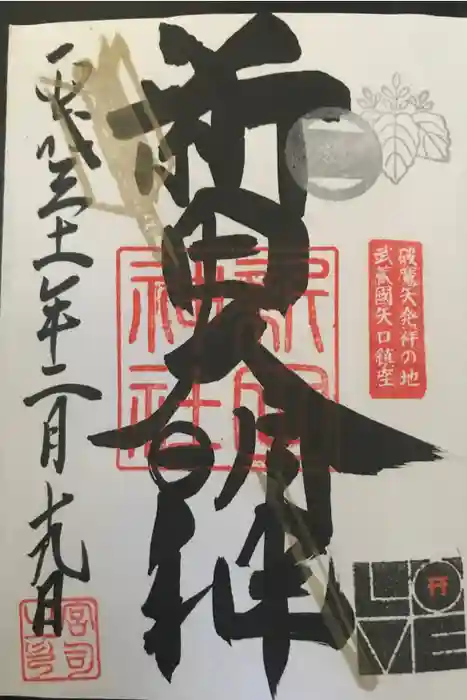 破魔矢発祥の地
武蔵國矢口鎮座
新田大明神
新田
神社
平成三十一年二月十九日
宮司
之印
LOVE